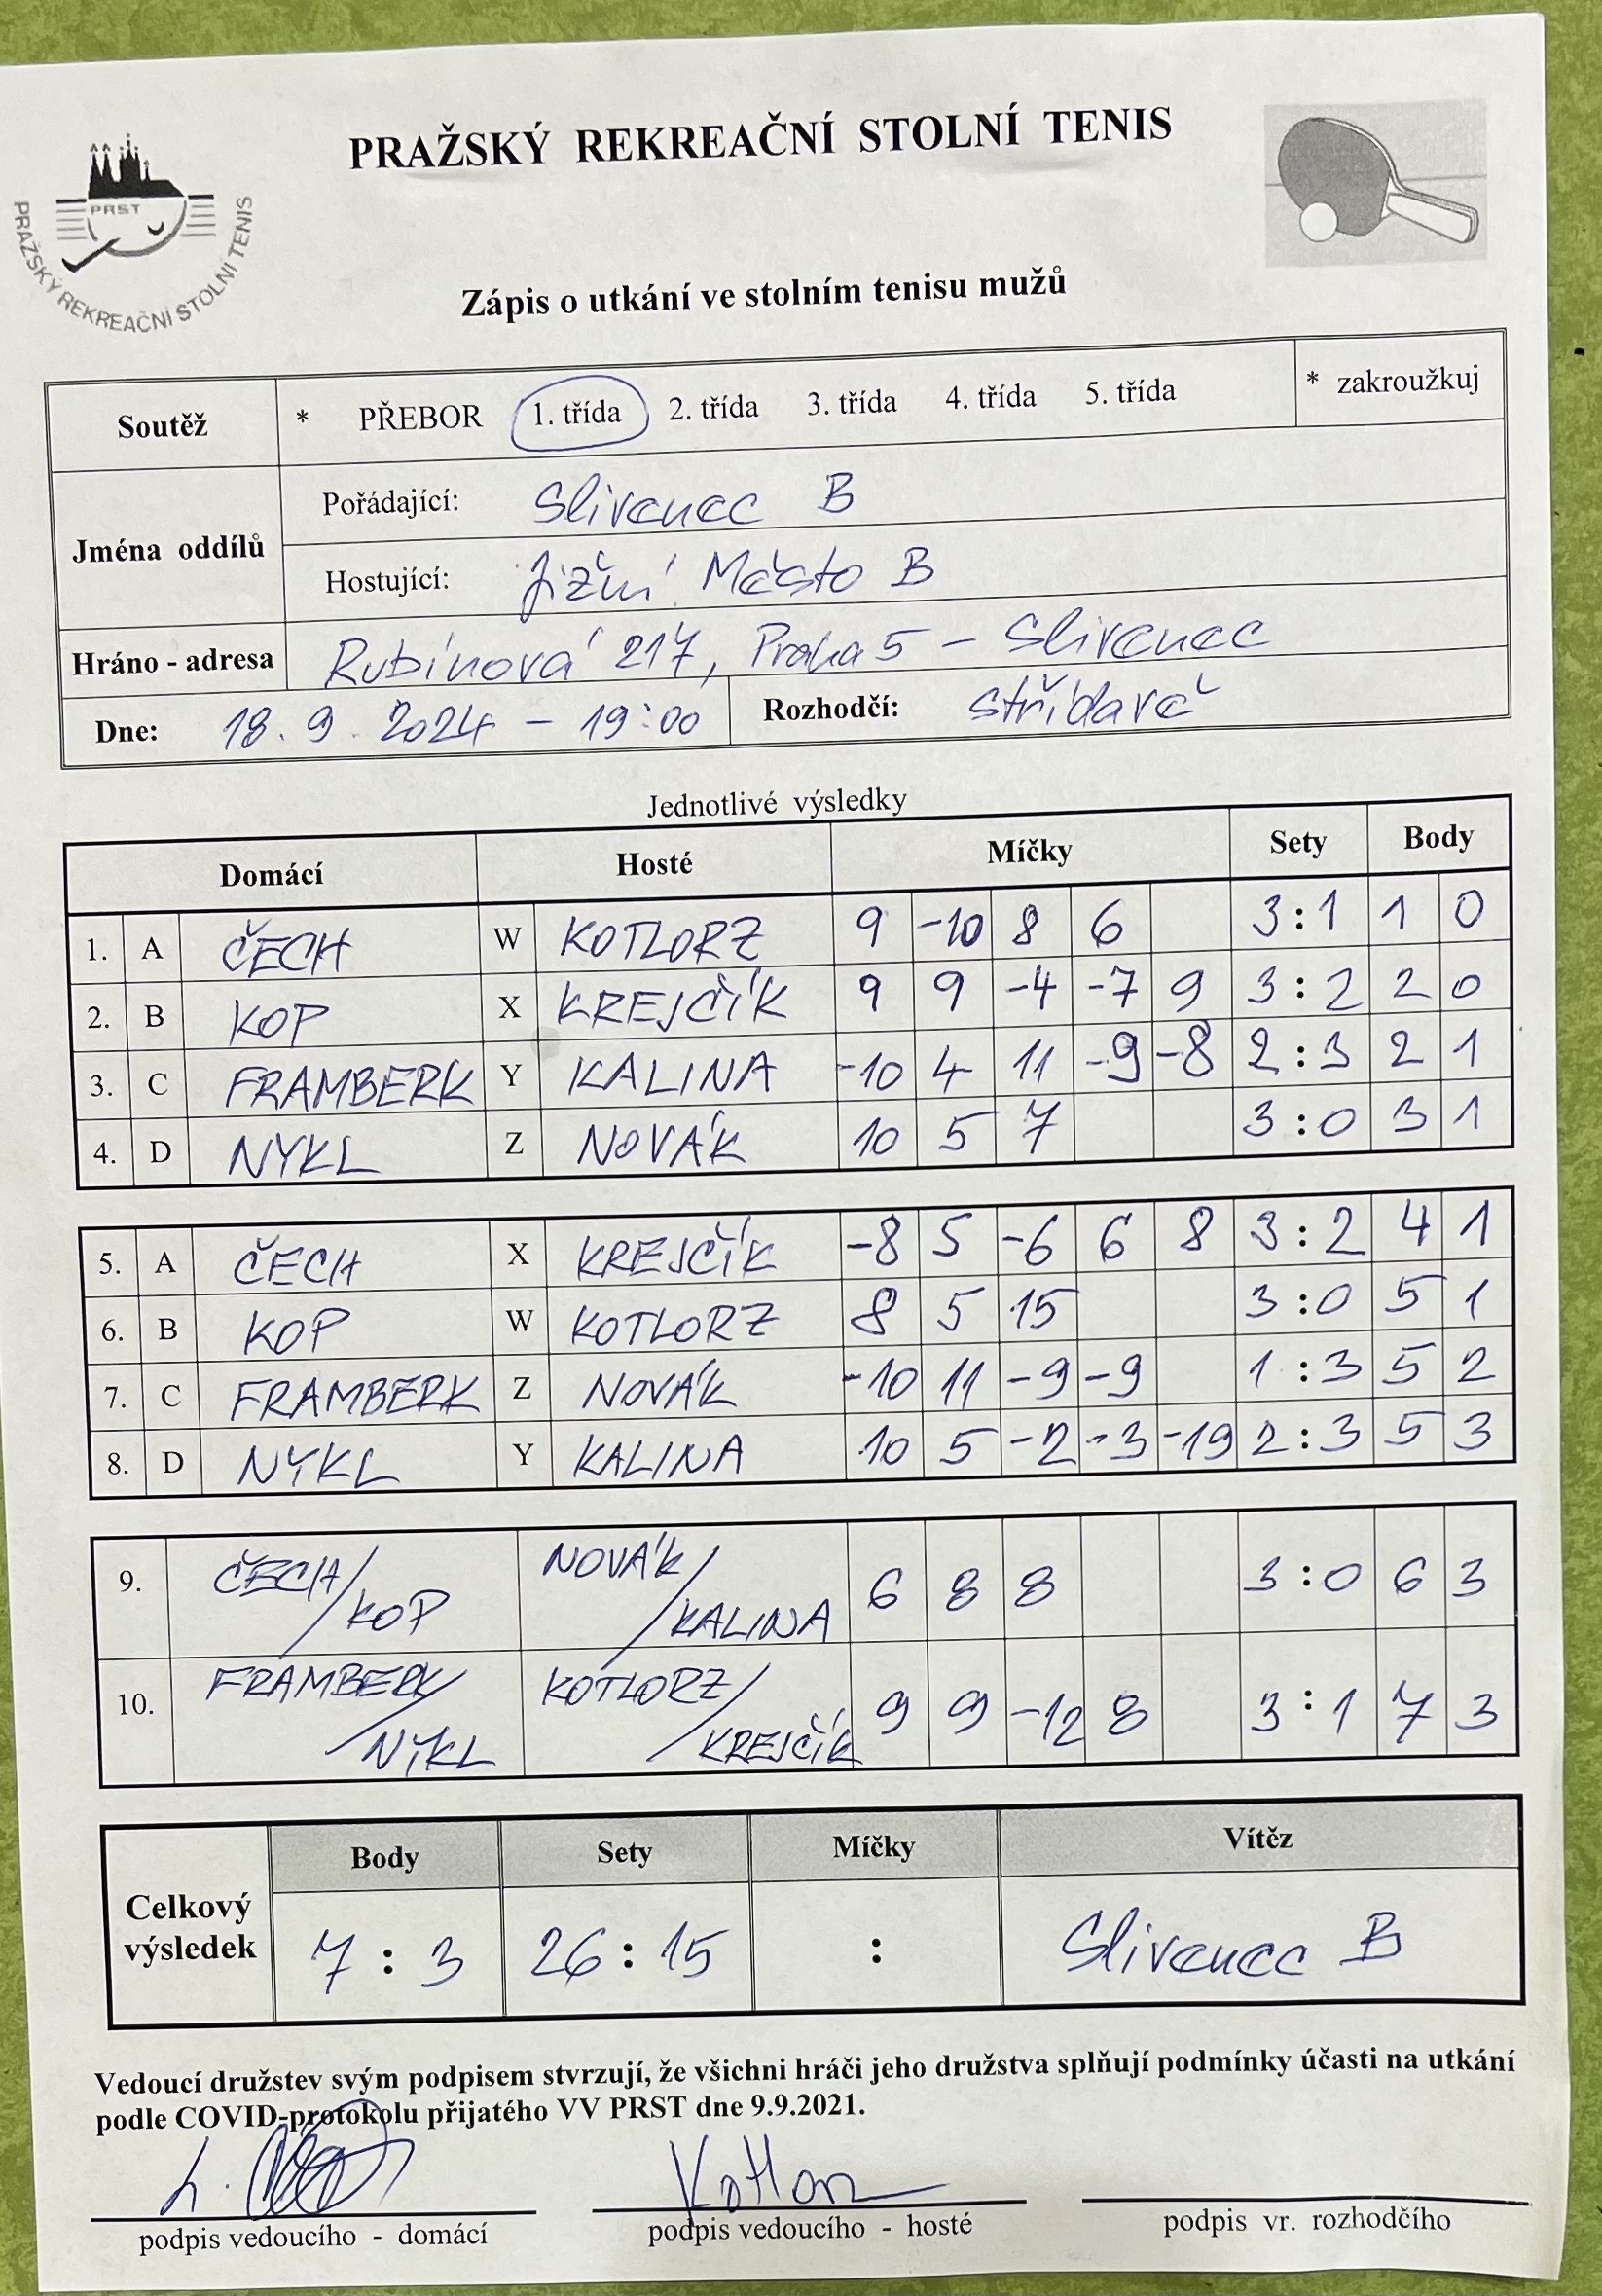 PRAŽSKÝ REKREAČNÍ STOLNÍ TENIS
PRST
PRAŽSKÝ REKREAČNÍ STOLNÍ TENIS
Zápis o utkání ve stolním tenisu mužů
Soutěž * PŘEBOR 1. třída 2. třída 3. třída 4. třída 5. třída * zakroužkuj
Jména oddílů
Pořádající: Slivenec B
Hostující: Jižní Město B
Hráno - adresa Rubínová 217, Praha 5 - Slivenec
Dne: 18. 9. 2024 - 19:00 Rozhodčí: střídavě
Jednotlivé výsledky
Domácí Hosté Míčky Sety Body
1. A ČECH W KOTLORZ 9 -10 8 6 3:1 1 0
2. B KOP X KREJČÍK 9 9 -4 -7 9 3:2 2 0
3. C FRAMBERK Y KALINA -10 4 11 -9 -8 2:3 2 1
4. D NYKL Z NOVÁK 10 5 7 3:0 3 1
5. A ČECH X KREJČÍK -8 5 -6 6 8 3:2 4 1
6. B KOP W KOTLORZ 8 5 15 3:0 5 1
7. C FRAMBERK Z NOVÁK -10 11 -9 -9 1:3 5 2
8. D NYKL Y KALINA 10 5 -2 -3 -19 2:3 5 3
9. ČECH/KOP NOVÁK/KALINA 6 8 8 3:0 6 3
10. FRAMBERK/NYKL KOTLORZ/KREJČÍK 9 9 -12 8 3:1 7 3
Celkový výsledek
Body Sety Míčky Vítěz
7:3 26:15 : Slivenec B
Vedoucí družstev svým podpisem stvrzují, že všichni hráči jeho družstva splňují podmínky účasti na utkání
podle COVID-protokolu přijatého VV PRST dne 9.9.2021.
podpis vedoucího - domácí podpis vedoucího - hosté podpis vr. rozhodčího